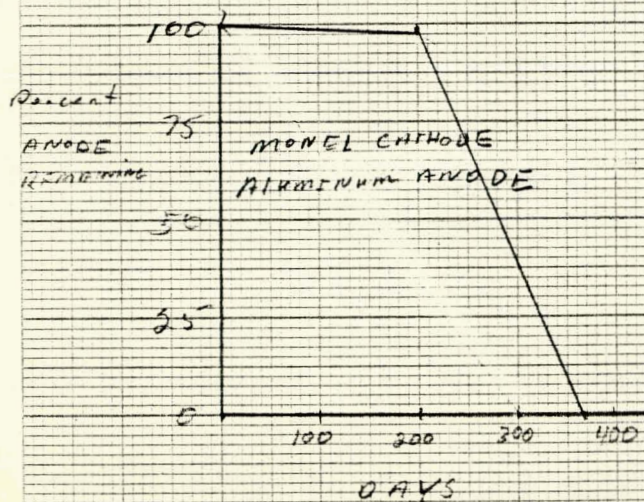 100
Percent
ANODE
REMAINING
75
MONEL CATHODE
ALUMINUM ANODE
50
25
0
100 200 300 400
DAYS